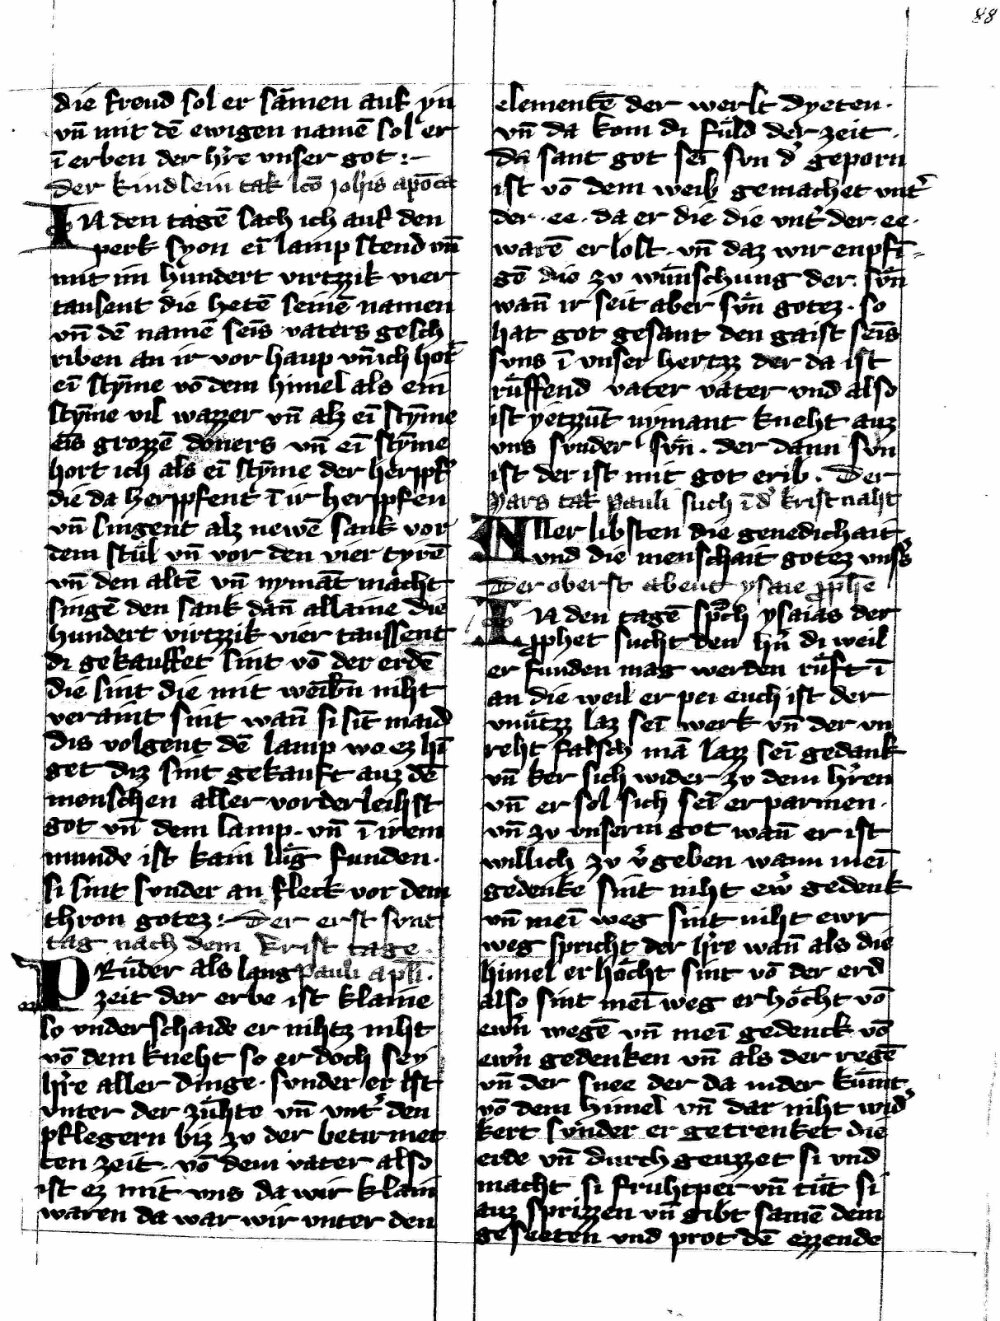 88
die freud sol er sāmen auf yn
vn̄ mit dē ewigen namē sol er
ī erben der hr̄e vnser got :~
Der kindlein tak lcō ioh̄is apōca
IN den tagē sach ich auf den
perk syon eī lamp stend vn̄
mit im hundert virtzzik vier
tausent die hetē seinē namen
vn̄ dē namē seīs vaters gesch
riben an ir vor haup vn̄ ich hort
eī stȳme vō dem himel als ein
stȳme vil wazzer vn̄ alz eī stȳme
eīs grozzē doners vn̄ eī stȳme
hort ich als eī stȳme der herpfer
die da herpfent ī ir herpfen
vn̄ singent alz newē sank vor
dem stůl vn̄ vor den vier tyrē
vn̄ den altē vn̄ nymāt macht
singē den sank dān allaine die
hundert virtzzik vier taussent
di gekauffet sint vō der erdē
die sint die mit weibn̄ niht
veraint sint wan̄ si sīt maid
dis volgent dē lamp wo ez hī
get diz sint gekauft auz dē
menschen aller vorderleihst
got vn̄ dem lamp · vn̄ ī irem
munde ist kain lůg funden ·
si sint sunder an fleck vor dem
thron gotez :~ Der erst svnt
tag nach dem krist tage
PRůder als lang Pauli apl̄i ·
zeit der erbe ist klaine
so vnderschaide er nihtz niht
vō dem kneht so er doch sey
hr̄e aller dinge · sunder er ist
vnter der zůhte vn̄ vnt͛ den
pflegern biz zv der betirmet
ten zeit · vō dem vater also
ist ez mit vns da wir klain
waren da war wir vnter den
elementē der werlt dyeten ·
vn̄ da kom di fůld der zeit ·
da sant got seī svn d͛ geporn
ist vō dem weib gemachet vnt͛
der · ee · da er die die vnt͛ der · ee ·
warē erlost · vn̄ daz wir enpfī
gē die zv wůnschung der · sůn
wan̄ ir seit aber sůn gotez · so
hat got gesant den gaist seīs
svns ī vnser hertzz der da ist
růffend vater vater vnd also
ist yetzzūt nymant kneht auz
vns svnder sůn · der dann svn
ist der ist mit got erib · Der
Pars tak Pauli such ī d͛ kristnaht
ALler libsten die genedichait
vnd die menschait gotez vns͛s
Der oberst abent ysaie pp̄hē
IN den tagē sp̄ch ysaias der
pp̄het sucht den hn̄ di weil
er funden mag werden růft ī
an die weil er pei euch ist der
vnůtzz laz seī werk vn̄ der vn
reht falsch mā lazz seī gedank
vn̄ ker sich wider zv dem hr̄en
vn̄ er sol sich seī erparmen ·
vn̄ zv vnserm got wan̄ er ist
willich zv v͛geben wann meī
gedenke sint niht ew͛ gedenk
vn̄ meī weg sint niht ewr
weg spricht der hr̄e wan̄ als die
himel erhöcht sint vō der erd
also sint meī weg erhöcht vō
ewrn̄ wegē vn̄ meī gedenck vō
ewrn̄ gedenken vn̄ als der regē
vn̄ der snee der da nider kůmt
vō dem himel vn̄ dar niht wid͛
kert sunder er getrenket die
erde vn̄ durch geuzzet si vnd
macht si fruhtper vn̄ tůt si
auz sprizzen vn̄ gibt samē dem
geseeten vnd prot dē ezzende